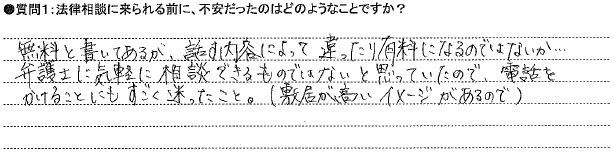 ●質問1:法律相談に来られる前に、不安だったのはどのようなことですか?
無料と書いてあるが、話す内容によって違ったり有料になるのではないか…
弁護士に気軽に相談できるものではないと思っていたので、電話を
かけることにもすごく迷ったこと。(敷居が高いイメージがあるので)